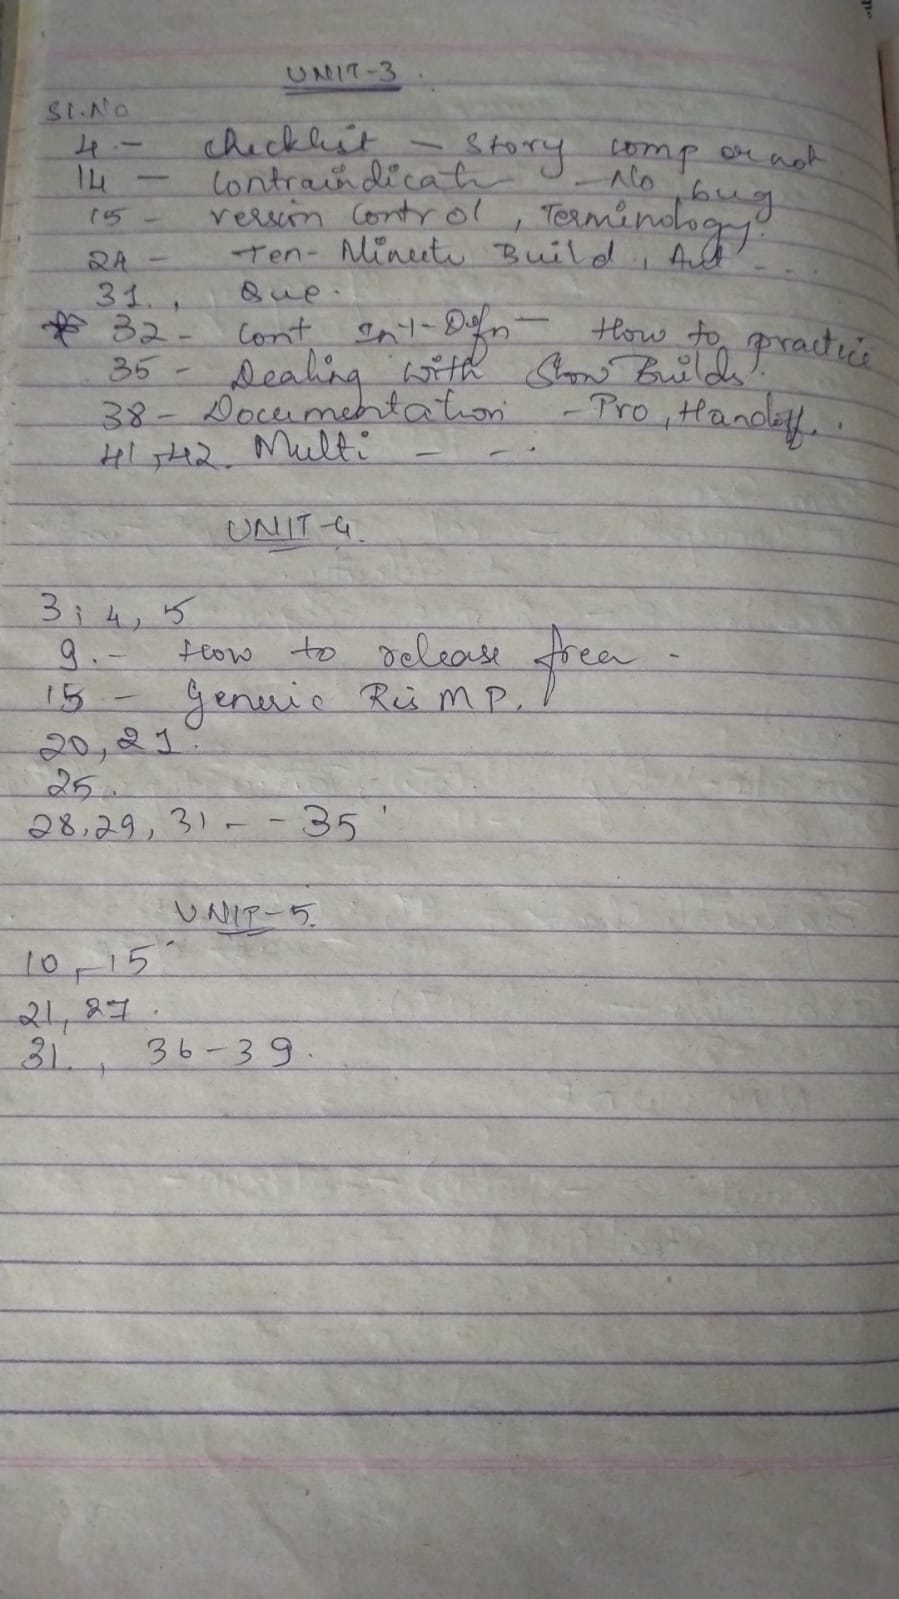 UNIT-3.
Sl.No
4.- checklist - story comp or not
14 - Contraindicatn - No bug
15 - version control, Terminology.
24 - Ten-Minute Build, Aut ...
31., Que.
* 32 - Cont Int-Defn - How to practice
35 - Dealing with Slow Builds.
38 - Documentation - Pro, Handoff..
41, 42. Multi - - ..
UNIT-4.
3, 4, 5
9.- How to release freq -
15 - Generic Ris MP.
20, 21.
25.
28, 29, 31 - - 35
UNIT-5.
10, -15
21, 27.
31., 36-39.